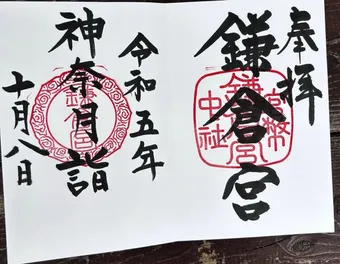 奉拝
鎌倉宮
官幣中社
鎌倉宮
令和五年
神奈月詣
鎌倉宮
十月八日